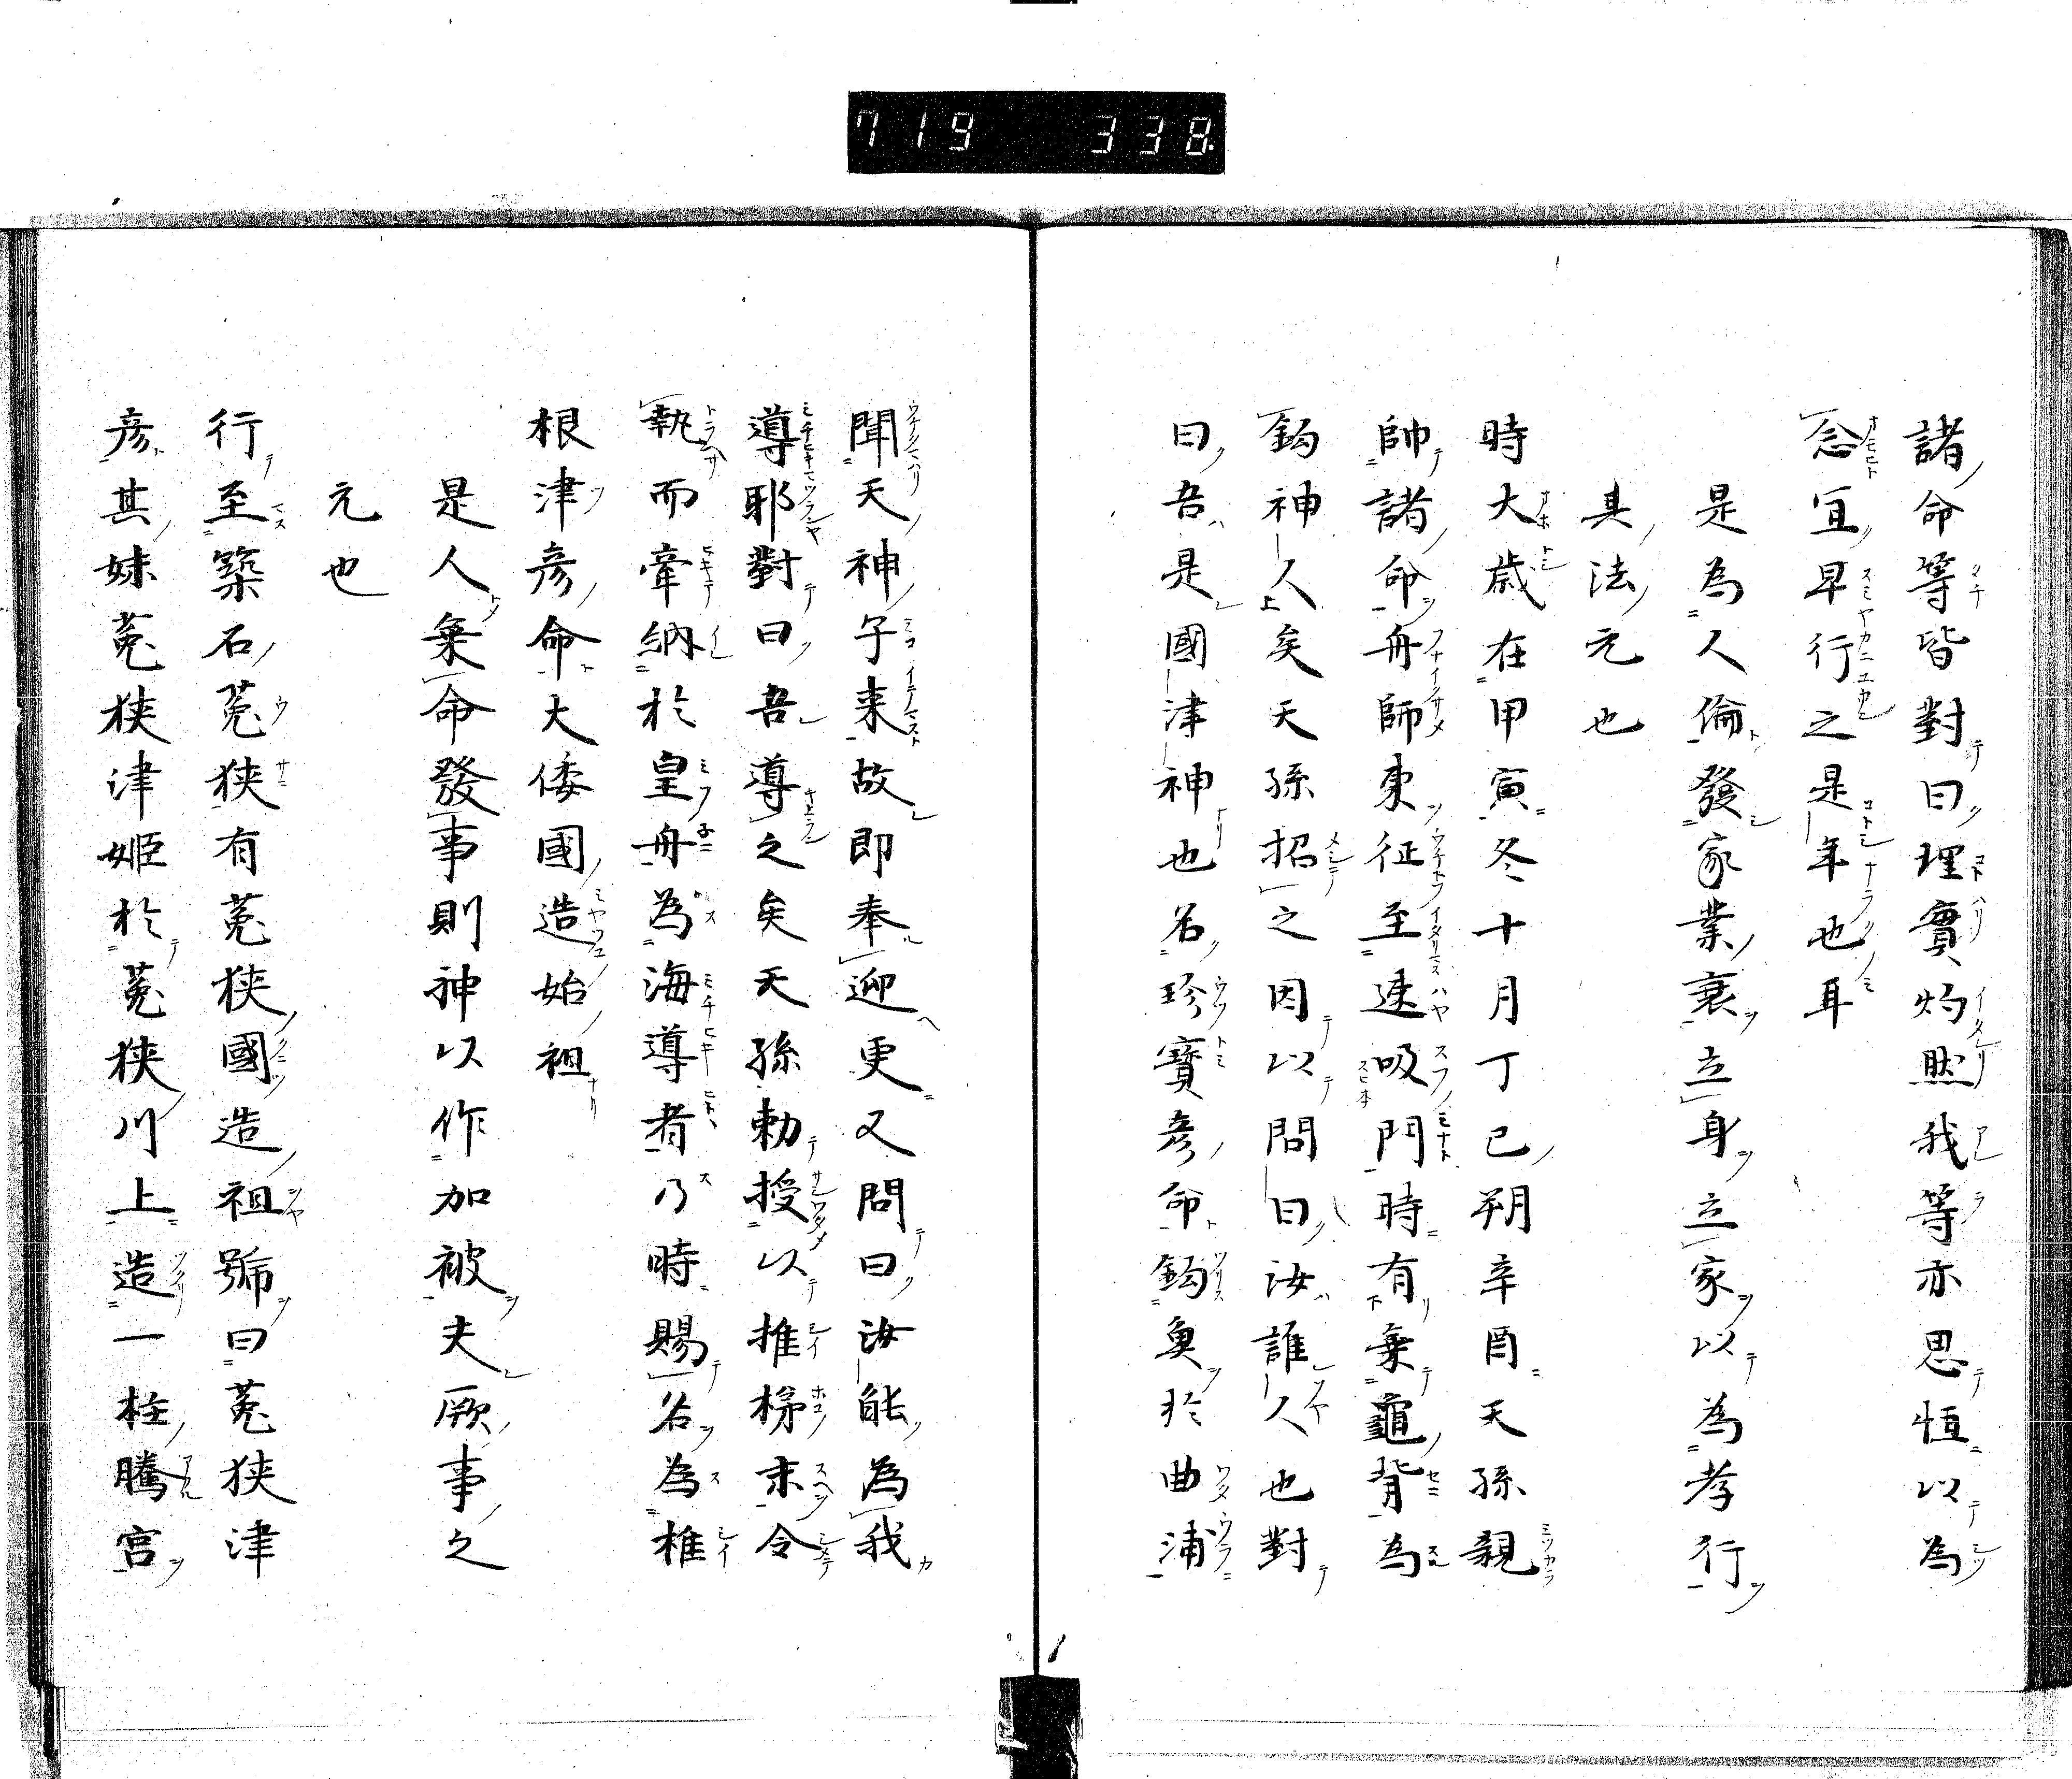 719 338
諸命等皆對曰理實灼然我等亦思恒以為
念宜早行之是年也耳
是為人倫發家業裹立身立家以為孝行
其法元也
時大歲在甲寅冬十月丁巳朔辛酉天孫親
帥諸命舟師東征至速吸門時有乗龜背為
釣神人矣天孫招之因以問曰汝誰人也對
曰吾是國津神也名珍寶彦命釣魚於曲浦
聞天神子来故即奉迎更又問曰汝能為我
導耶對曰吾導之矣天孫勅授以推梯末令
執而牽納於皇舟為海導者乃時賜名為椎
根津彦命大倭國造始祖
是人棄命發事則神以作加被夫厥事之
元也
行至築石菟狭有菟狭國造祖號曰菟狭津
彦其妹菟狭津姫於菟狭川上造一柱騰宮